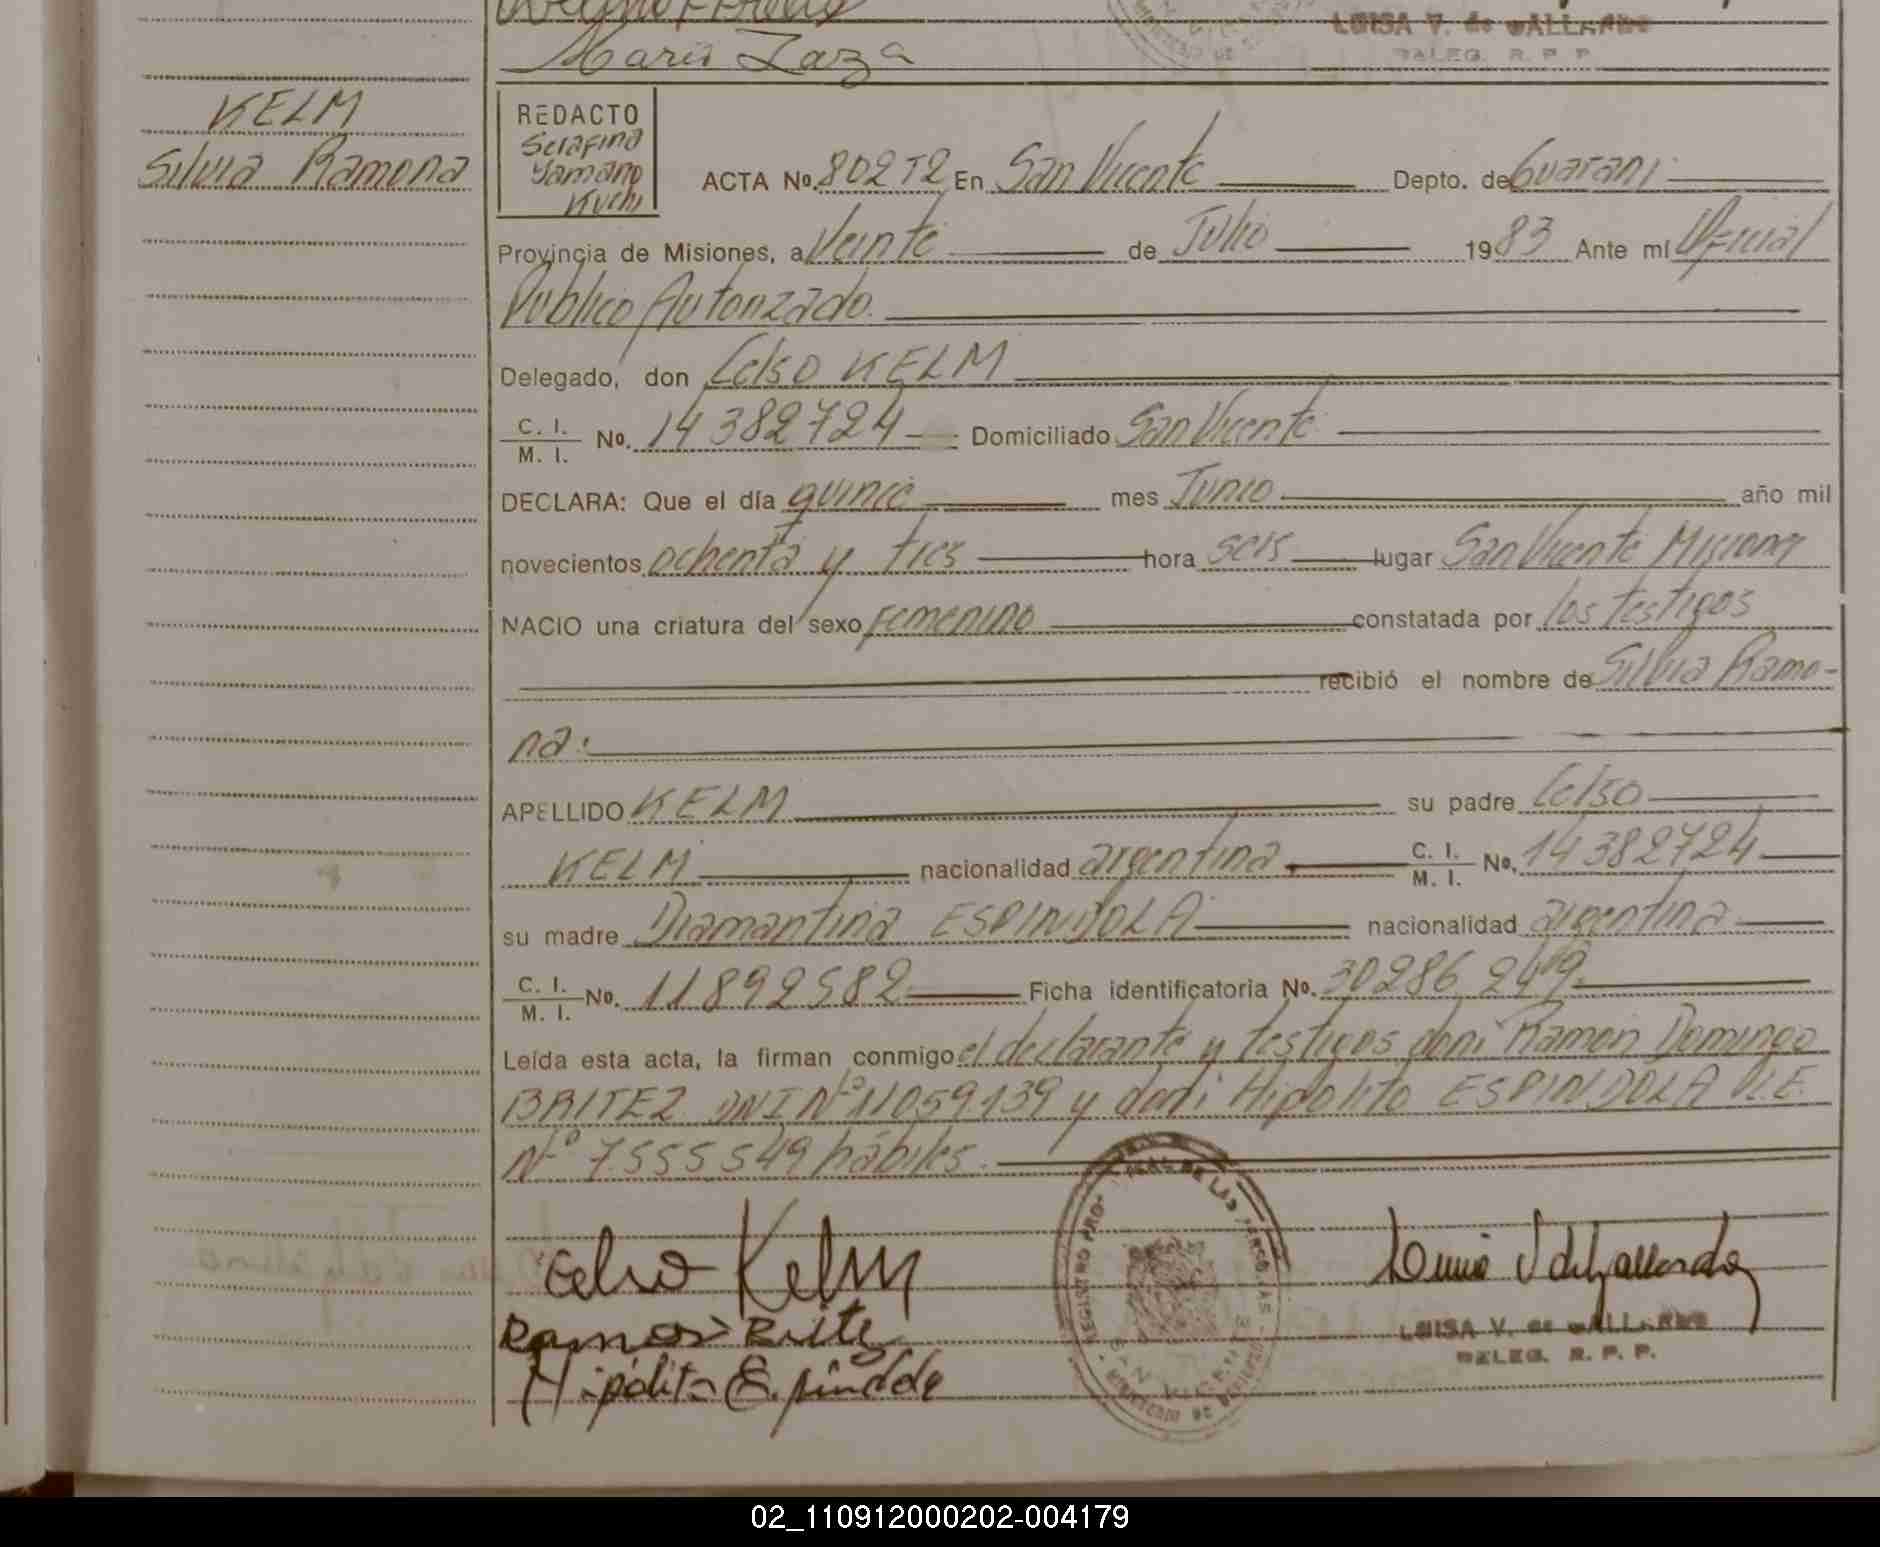 Maria Zaza
LUISA V. de GALLARDO
DELEG. R. P. P.
KELM
Silvia Ramona
REDACTO
Serafina
Yamano
Kuchi
ACTA No. 802T2 En San Vicente Depto. de Guarani
Provincia de Misiones, a Veinte de Julio 1983 Ante mI Oficial
Publico Autorizado.
Delegado, don Celso KELM
C. I. / M. I. No. 14382724 Domiciliado San Vicente
DECLARA: Que el día quince mes Junio año mil
novecientos ochenta y tres hora seis lugar San Vicente Misiones
NACIO una criatura del sexo femenino constatada por los testigos
recibió el nombre de Silvia Ramo-
na.
APELLIDO KELM su padre Celso
KELM nacionalidad argentina C. I. / M. I. No. 14382724
su madre Diamantina ESPINDOLA nacionalidad argentina
C. I. / M. I. No. 11892582 Ficha identificatoria No. 30286249
Leída esta acta, la firman conmigo el declarante y testigos don: Ramon Domingo
BRITEZ DNI Nº 11059139 y don: Hipolito ESPINDOLA L.E.
Nº 7555549 hábiles.
Celso Kelm
Ramon Britez
Hipólito Espindola
REGISTRO PROVINCIAL DE LAS PERSONAS
LUISA V. de GALLARDO
DELEG. R. P. P.
02_110912000202-004179